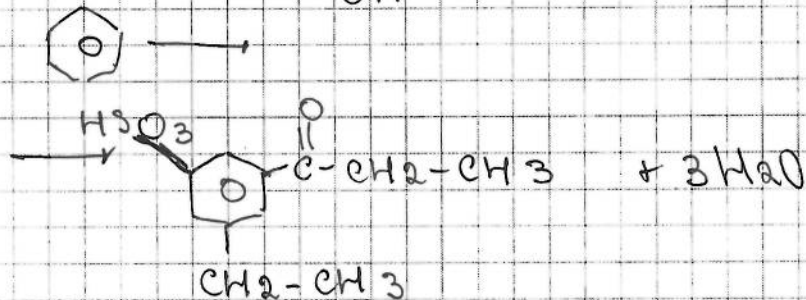 HSO3
O
C-CH2-CH3 + 3H2O
CH2-CH3